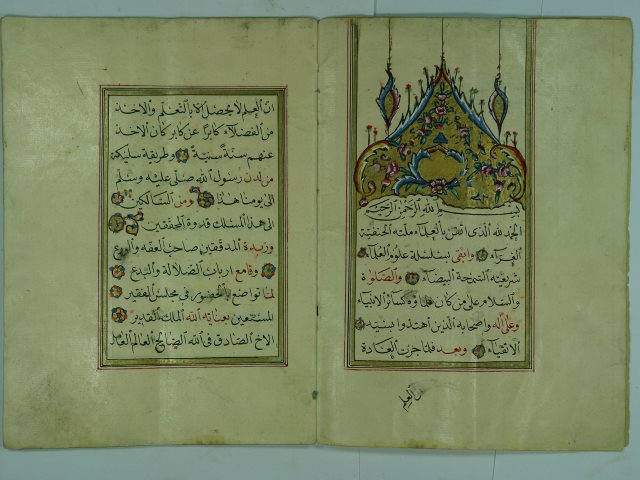 بسم الله الرحمن الرحيم
الحمد لله الذى اتقن بالعلماء ملته الحنفية
الغراء وابقى بسلسلة علوم العلماء
شريعته السمحة البيضاء والصلوة
والسلام على من كان علماؤه كسائر الانبياء
وعلى اله واصحابه الذين اهتدوا بسنته
الاتقياء وبعد فلما جرت العادة
ان العلم
ان العلم لا يحصل الا بالتعلم والاخذ
من الفضلاء كابرا عن كابر كان الاخذ
عنهم سنة سنية وطريقة سليكة
من لدن رسول الله صلى عليه وسلم
الى يومنا هذا ومن السالكين
الى هذا المسلك قدوة المحققين
وزبدة المدققين صاحب الفقه والورع
وقامع ارباب الضلالة والبدع
لما تواضع بالحضور فى مجلس الفقير
المستعين بعناية الله الملك القدير
الاخ الصادق فى الله الصالح العالم العامل